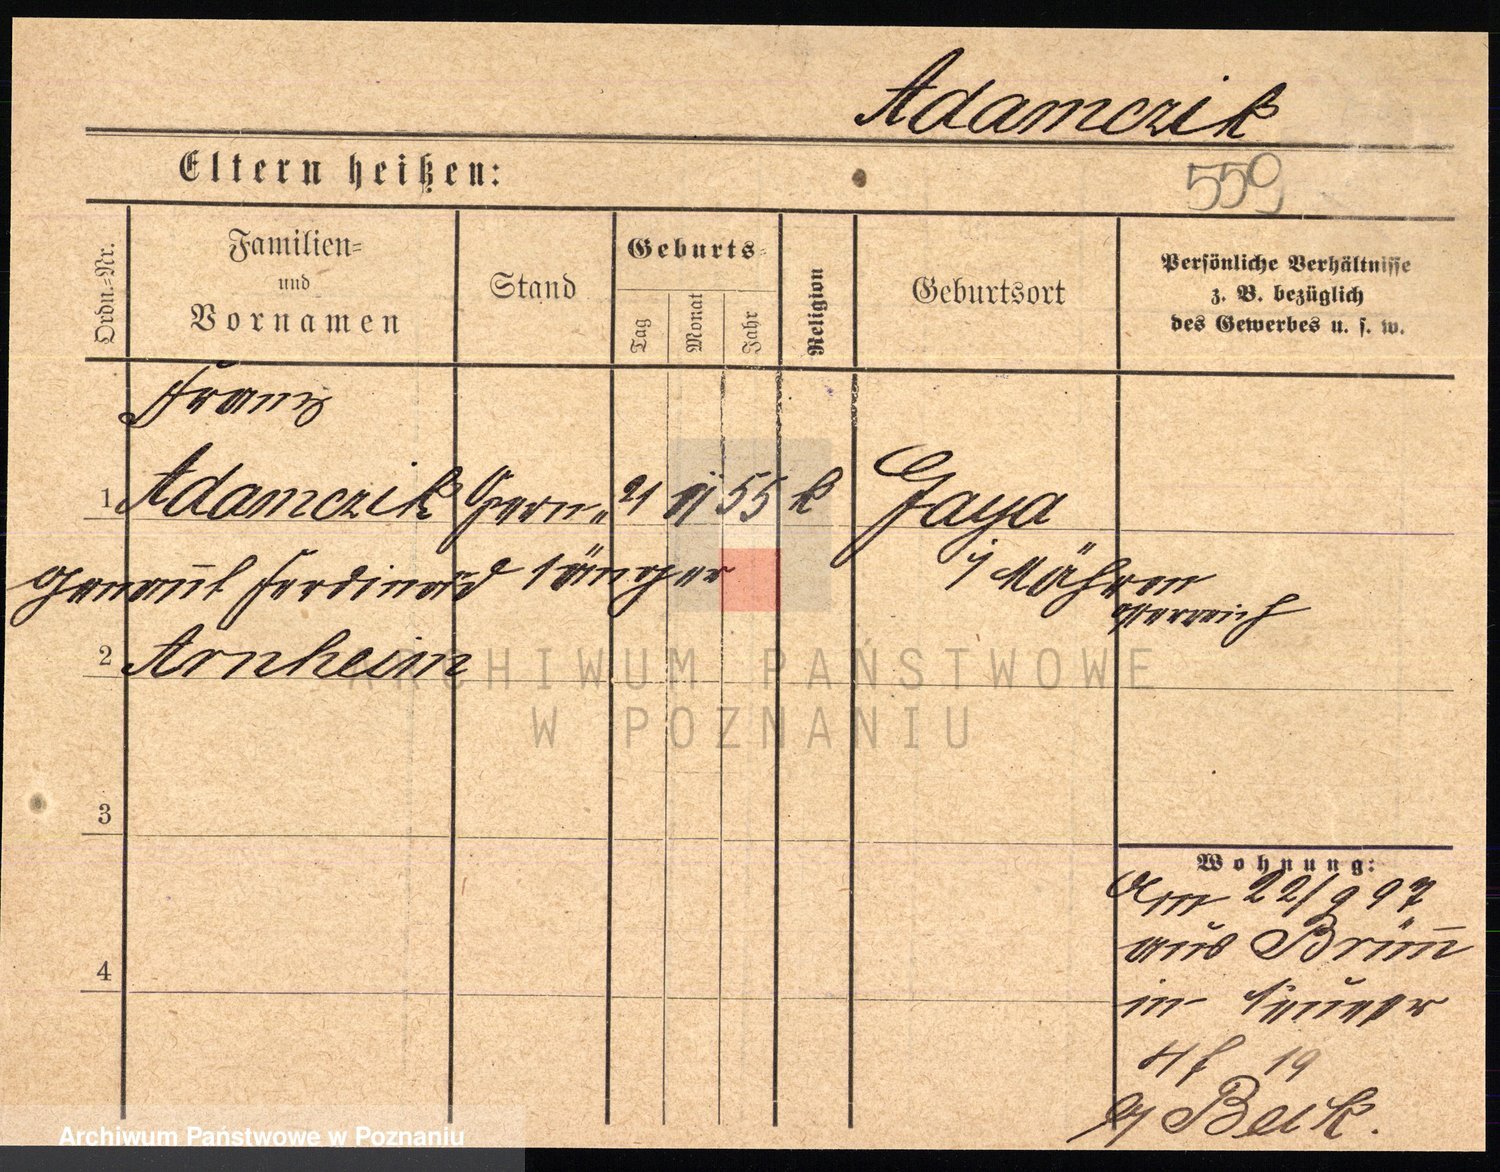 Adamczik
Eltern heißen:
559
Ordn.=Nr.
Familien=
und
Vornamen
Stand
Geburts=
Tag
Monat
Jahr
Religion
Geburtsort
Persönliche Verhältnisse
z. B. bezüglich
des Gewerbes u. s. w.
Franz
1 Adamczik Opern„ 21 55 k Gaya
genannt Ferdinand sänger i/ Mähren
Österreich
2 Arnheim
ARCHIWUM PAŃSTWOWE
W POZNANIU
3
4
Wohnung:
Am 22/9 97
aus Brünn
in
19
b/ Beck.
Archiwum Państwowe w Poznaniu